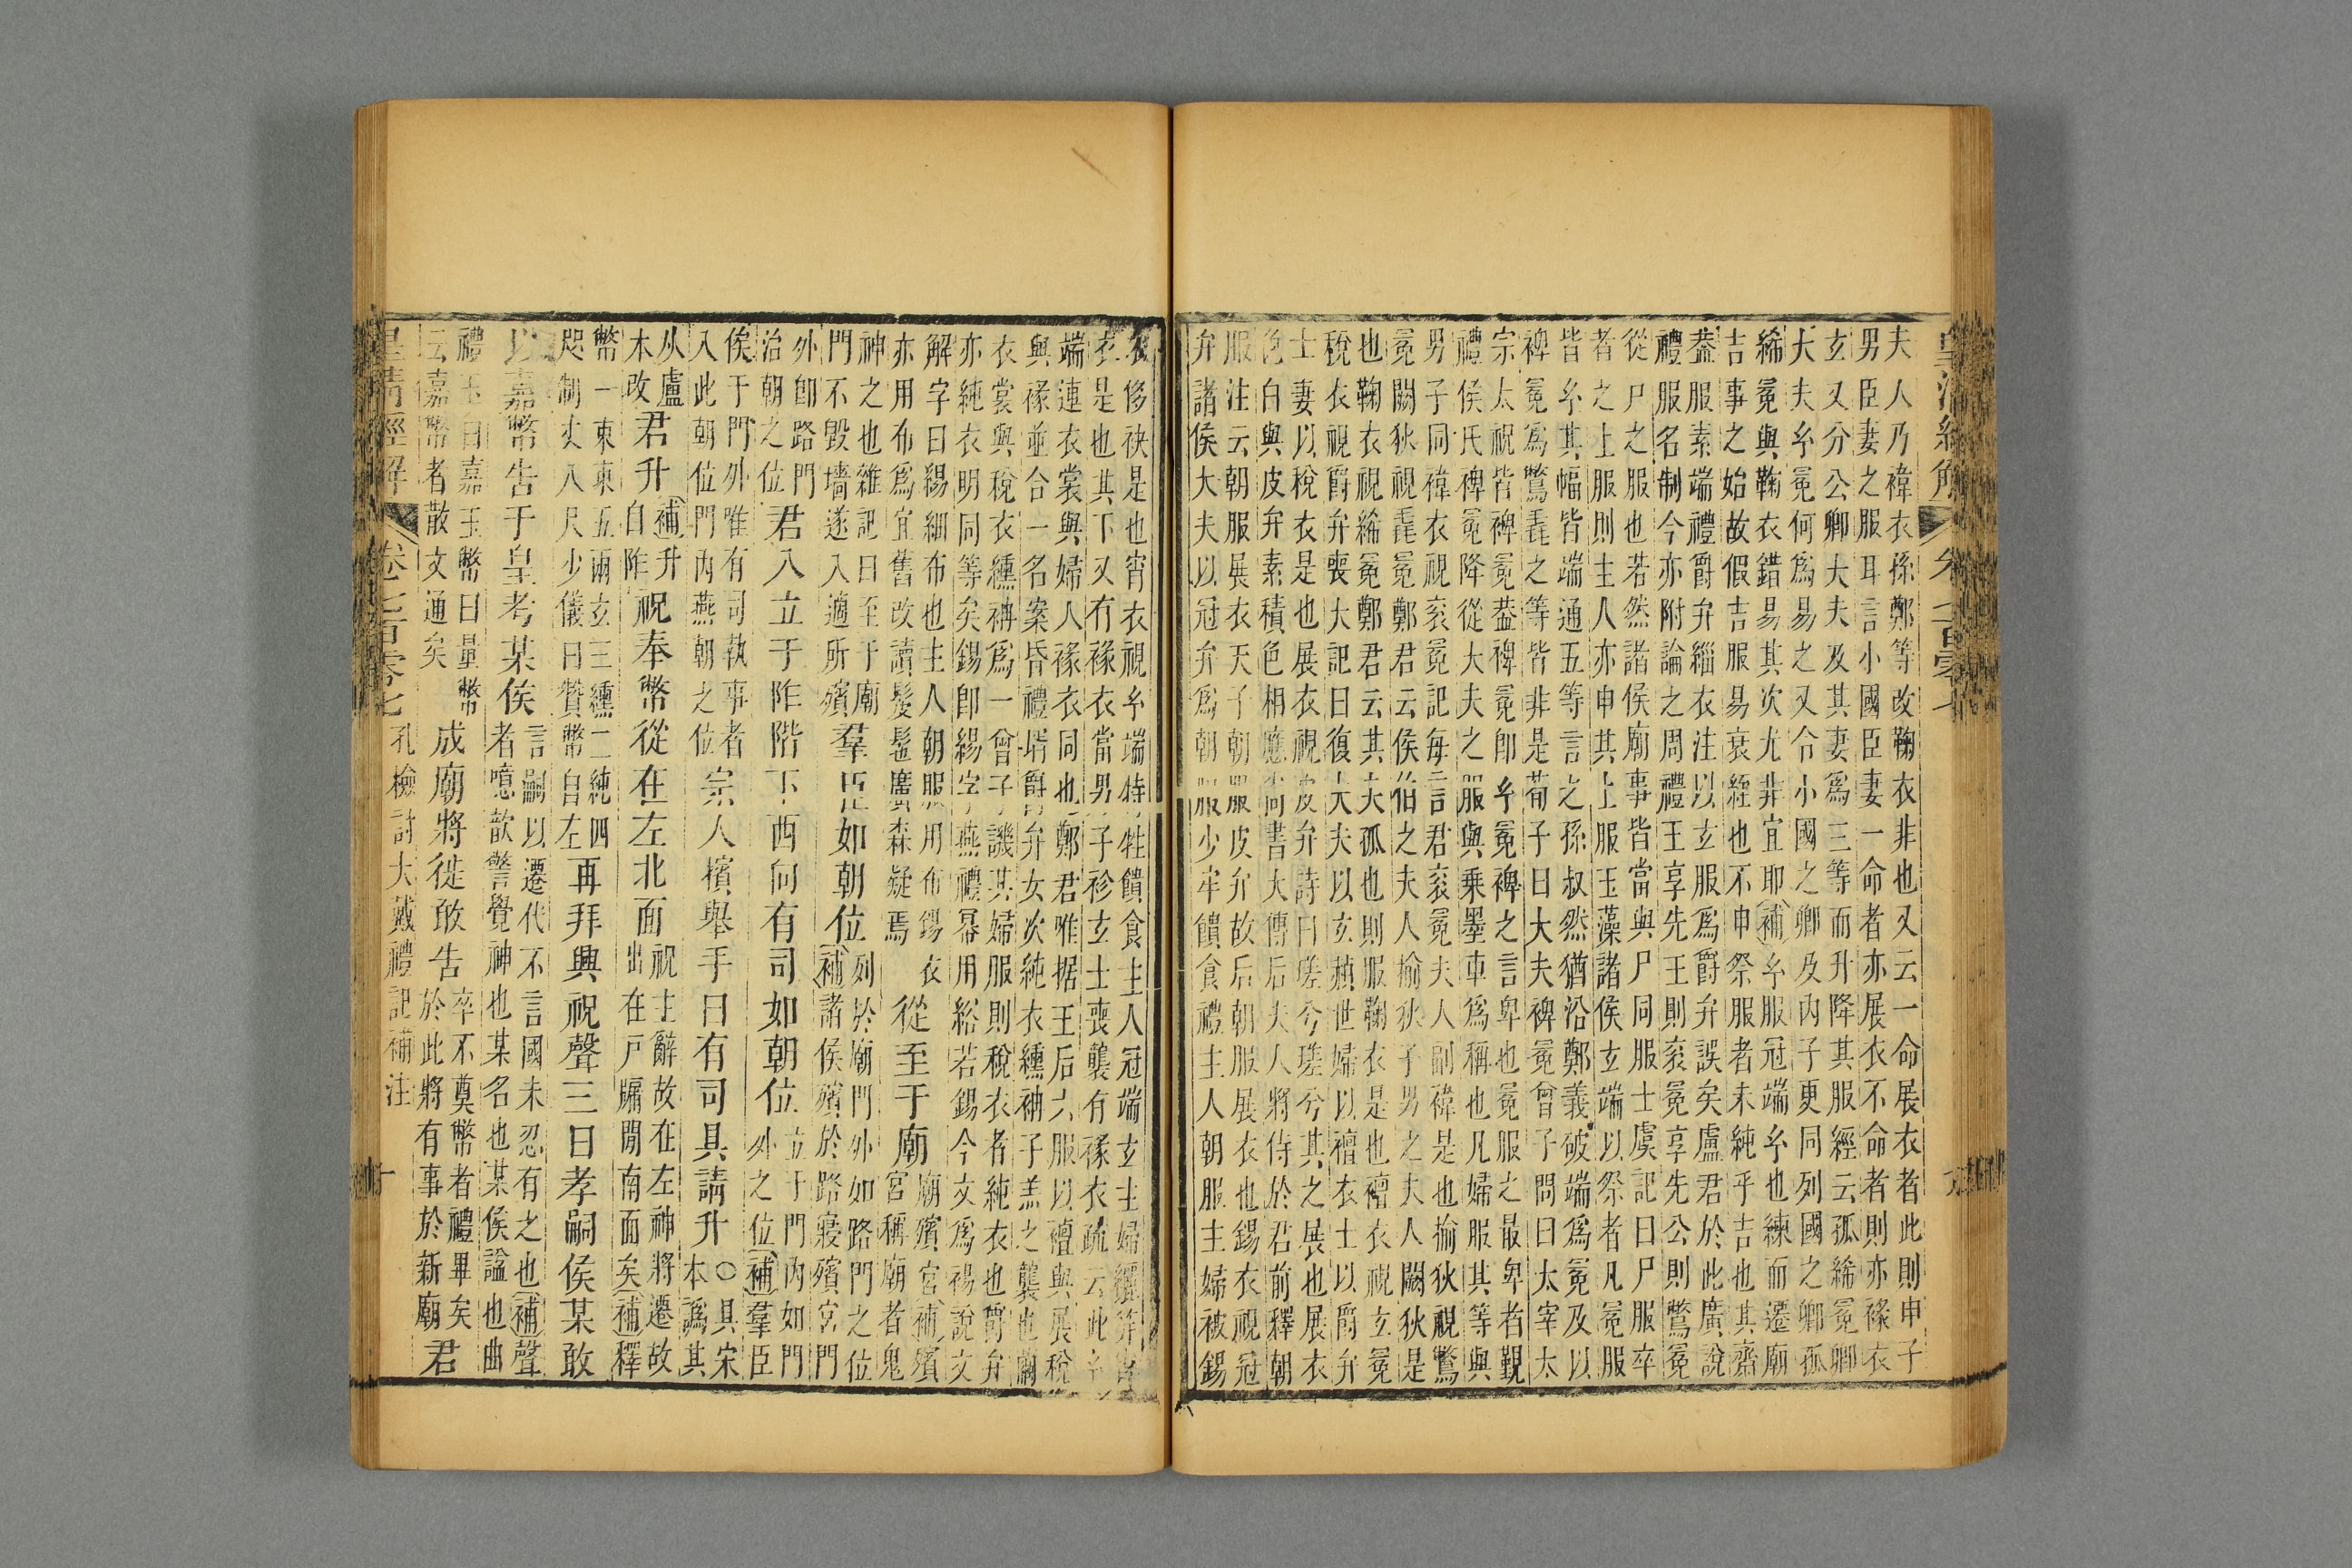 夫人乃褘衣孫鄭等改鞠衣非也又云一命展衣者此則申子
男臣妻之服耳言小國臣妻一命者亦展衣不命者則亦褖衣
玄又分公卿大夫及其妻爲三等而升降其服經云孤絺冕卿
大夫玄冕何爲易之又令小國之卿及內子更同列國之卿孤
絺冕與鞠衣錯易其次尤非宜耶補玄服冠端玄也練而遷廟
吉事之始故假吉服易衰絰也不申祭服者未純乎吉也其齋
葢服素端禮爵弁緇衣注以玄服爲爵弁誤矣盧君於此廣說
禮服名制今亦附論之周禮王享先王則衮冕享先公則鷩冕
從尸之服也若然諸侯廟事皆當與尸同服士虞記曰尸服卒
者之上服則主人亦申其上服玉藻諸侯玄端以祭者凡冕服
皆玄其幅皆端通五等言之孫叔然猶沿鄭義破端爲冕及以
裨冕爲鷩毳之等皆非是荀子曰大夫裨冕曾子問曰太宰太
宗太祝皆裨冕葢裨冕卽玄冕裨之言卑也冕服之最卑者覲
禮侯氏裨冕降從大夫之服與乘墨車爲稱也凡婦服其等與
男子同褘衣視衮冕記每言君衮冕夫人副褘是也揄狄視鷩
冕闕狄視毳冕鄭君云侯伯之夫人揄狄子男之夫人闕狄是
也鞠衣視絺冕鄭君云其夫孤也則服鞠衣是也襢衣視玄冕
稅衣視爵弁喪大記曰復大夫以玄赬世婦以襢衣士以爵弁
士妻以稅衣是也展衣視皮弁詩曰瑳兮瑳兮其之展也展衣
色白與皮弁素積色相應尚書大傳后夫人將侍於君前釋朝
服注云朝服展衣天子朝服皮弁故后朝服展衣也錫衣視冠
弁諸侯大夫以冠弁爲朝服少牢饋食禮主人朝服主婦被錫
衣侈袂是也宵衣視玄端特牲饋食主人冠端玄主婦纚笄宵
衣是也其下又有褖衣當男子袗玄士喪襲有褖衣疏云此玄
端連衣裳與婦人褖衣同也鄭君唯据王后六服以襢與展稅
與褖並合一名案昏禮壻爵弁女次純衣纁袡子羔之襲也繭
衣裳與稅衣纁袡爲一曾子譏其婦服則稅衣者純衣也爵弁
亦純衣明同等矣錫卽緆字燕禮冪用綌若錫今文爲裼說文
解字曰緆細布也主人朝服用布錫衣
亦用布爲宜舊改讀髲髢廣森疑焉從至于廟廟殯宮補殯
宮稱廟者鬼
神之也雜記曰至于廟
門不毀墻遂入適所殯羣臣如朝位列於廟門外如路門之位
補諸侯殯於路寢殯宮門
外卽路門
治朝之位君入立于阼階下西向有司如朝位立于門內如門
外之位補羣臣
侯于門外唯有司執事者
入此朝位門內燕朝之位宗人擯舉手曰有司具請升○具宋
本譌其
从盧
本改君升補升
自阼祝奉幣從在左北面祝主辭故在左神將遷故
出在戸牖閒南面矣補釋
幣一束束五兩玄三纁二純四
咫制丈八尺少儀曰贊幣自左再拜興祝聲三曰孝嗣侯某敢
以嘉幣告于皇考某侯言嗣以遷代不言國未忍有之也補聲
者噫歆警覺神也某名也某侯諡也曲
禮玉曰嘉玉幣曰量幣
云嘉幣者散文通矣成廟將徙敢告卒不奠幣者禮畢矣
於此將有事於新廟君
皇清經解 卷七百零七 孔檢討大戴禮記補注 十